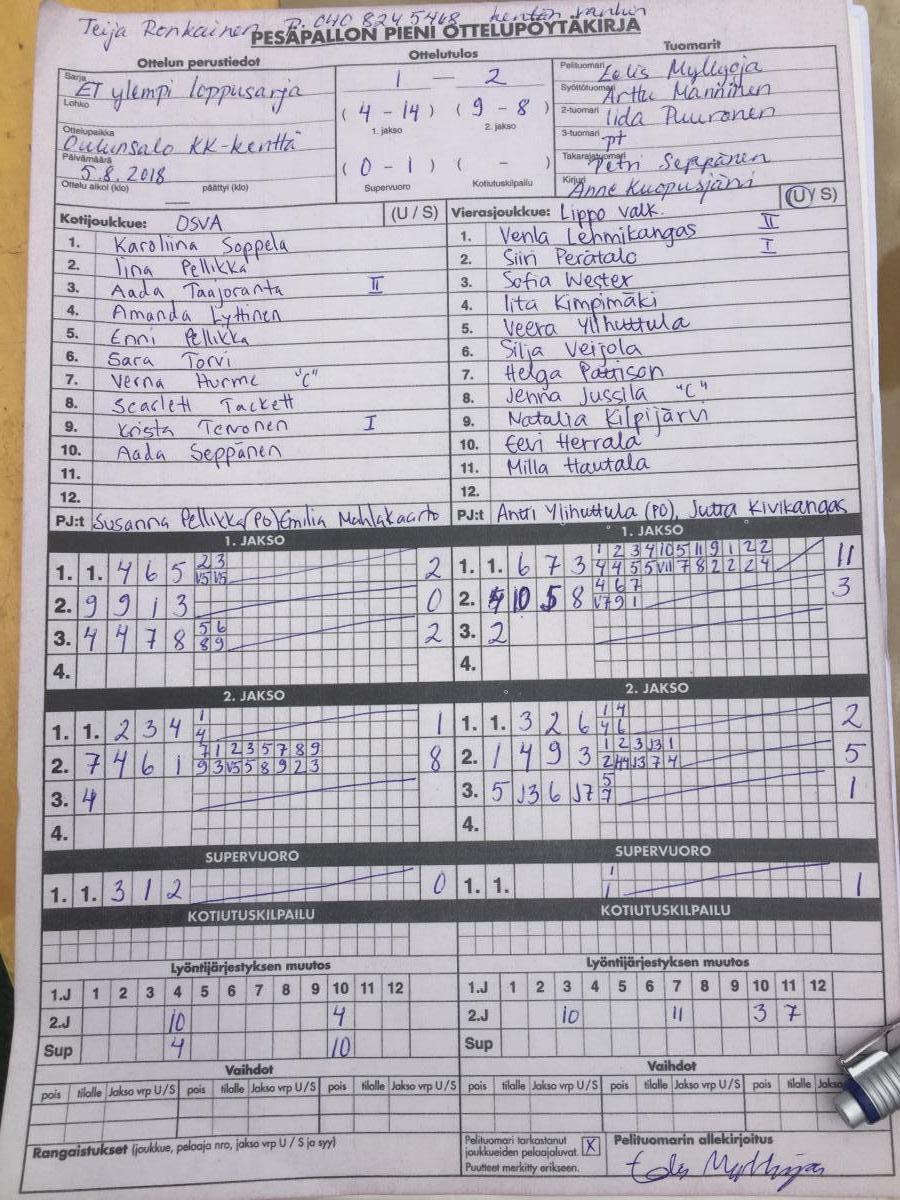 Teija Ronkainen P. 040 8245468 kentän vanhin
PESÄPALLON PIENI OTTELUPÖYTÄKIRJA
Ottelun perustiedot
Sarja
ET ylempi loppusarja
Lohko
Ottelupaikka
Oulunsalo KK-kenttä
Päivämäärä
5.8.2018
Ottelu alkoi (klo) — päättyi (klo)
Ottelutulos
1 — 2
(4 - 14) (9 - 8)
1. jakso 2. jakso
(0 - 1) ( - )
Supervuoro Kotiutuskilpailu
Tuomarit
Pelituomari Myllyoja
Syöttötuomari Arttu Manninen
2-tuomari Iida Puuronen
3-tuomari pt
Takarajatuomari Petri Seppänen
Kirjuri Anne Kuopusjärvi
Kotijoukkue: OSVA (U / S)
1. Karoliina Soppela
2. Iina Pellikka
3. Aada Taajoranta II
4. Amanda Lyttinen
5. Enni Pellikka
6. Sara Torvi
7. Verna Hurme "C"
8. Scarlett Tackett
9. Krista Tervonen I
10. Aada Seppänen
11.
12.
PJ:t Susanna Pellikka (PO) Emilia Mahlakaarto
Vierasjoukkue: Lippo valk. (U / S)
1. Venla Lehmikangas II
2. Siiri Perätalo I
3. Sofia Wester
4. Iita Kimpimäki
5. Veera Ylihuttula
6. Silja Veijola
7. Helga Pattison
8. Jenna Jussila "C"
9. Natalia Kilpijärvi
10. Eevi Herrala
11. Milla Hautala
12.
PJ:t Antti Ylihuttula (PO), Jutta Kivikangas
1. JAKSO
1. 1. 4 6 5 2 3 2
V5 V5
2. 9 9 1 3 0
3. 4 4 7 8 5 6 2
8 9
4.
1. JAKSO
1. 1. 6 7 3 1 2 3 4 10 5 11 9 1 2 2 11
4 4 5 5 V11 7 8 2 2 2 4
2. 10 5 8 4 6 7 3
V7 9 1
3. 2
4.
2. JAKSO
1. 1. 2 3 4 1 1
4
2. 7 4 6 1 7 1 2 3 5 7 8 9 8
9 3 V5 5 8 9 2 3
3. 4
4.
2. JAKSO
1. 1. 3 2 6 1 4 2
4 6
2. 1 4 9 3 1 2 3 J3 1 5
2 J3 7 4
3. 5 J3 6 J7 5 1
7
4.
SUPERVUORO
1. 1. 3 1 2 0
SUPERVUORO
1. 1. 1 1
1
KOTIUTUSKILPAILU
KOTIUTUSKILPAILU
Lyöntijärjestyksen muutos
1.J 1 2 3 4 5 6 7 8 9 10 11 12
2.J 10 4
Sup 4 10
Lyöntijärjestyksen muutos
1.J 1 2 3 4 5 6 7 8 9 10 11 12
2.J 10 11 3 7
Sup
Vaihdot
pois tilalle Jakso vrp U/S pois tilalle Jakso vrp U/S pois tilalle Jakso vrp U/S
Vaihdot
pois tilalle Jakso vrp U/S pois tilalle Jakso vrp U/S pois tilalle Jakso
Rangaistukset (joukkue, pelaaja nro, jakso vrp U / S ja syy)
Pelituomari tarkastanut
joukkueiden pelaajaluvat. X
Puutteet merkitty erikseen.
Pelituomarin allekirjoitus